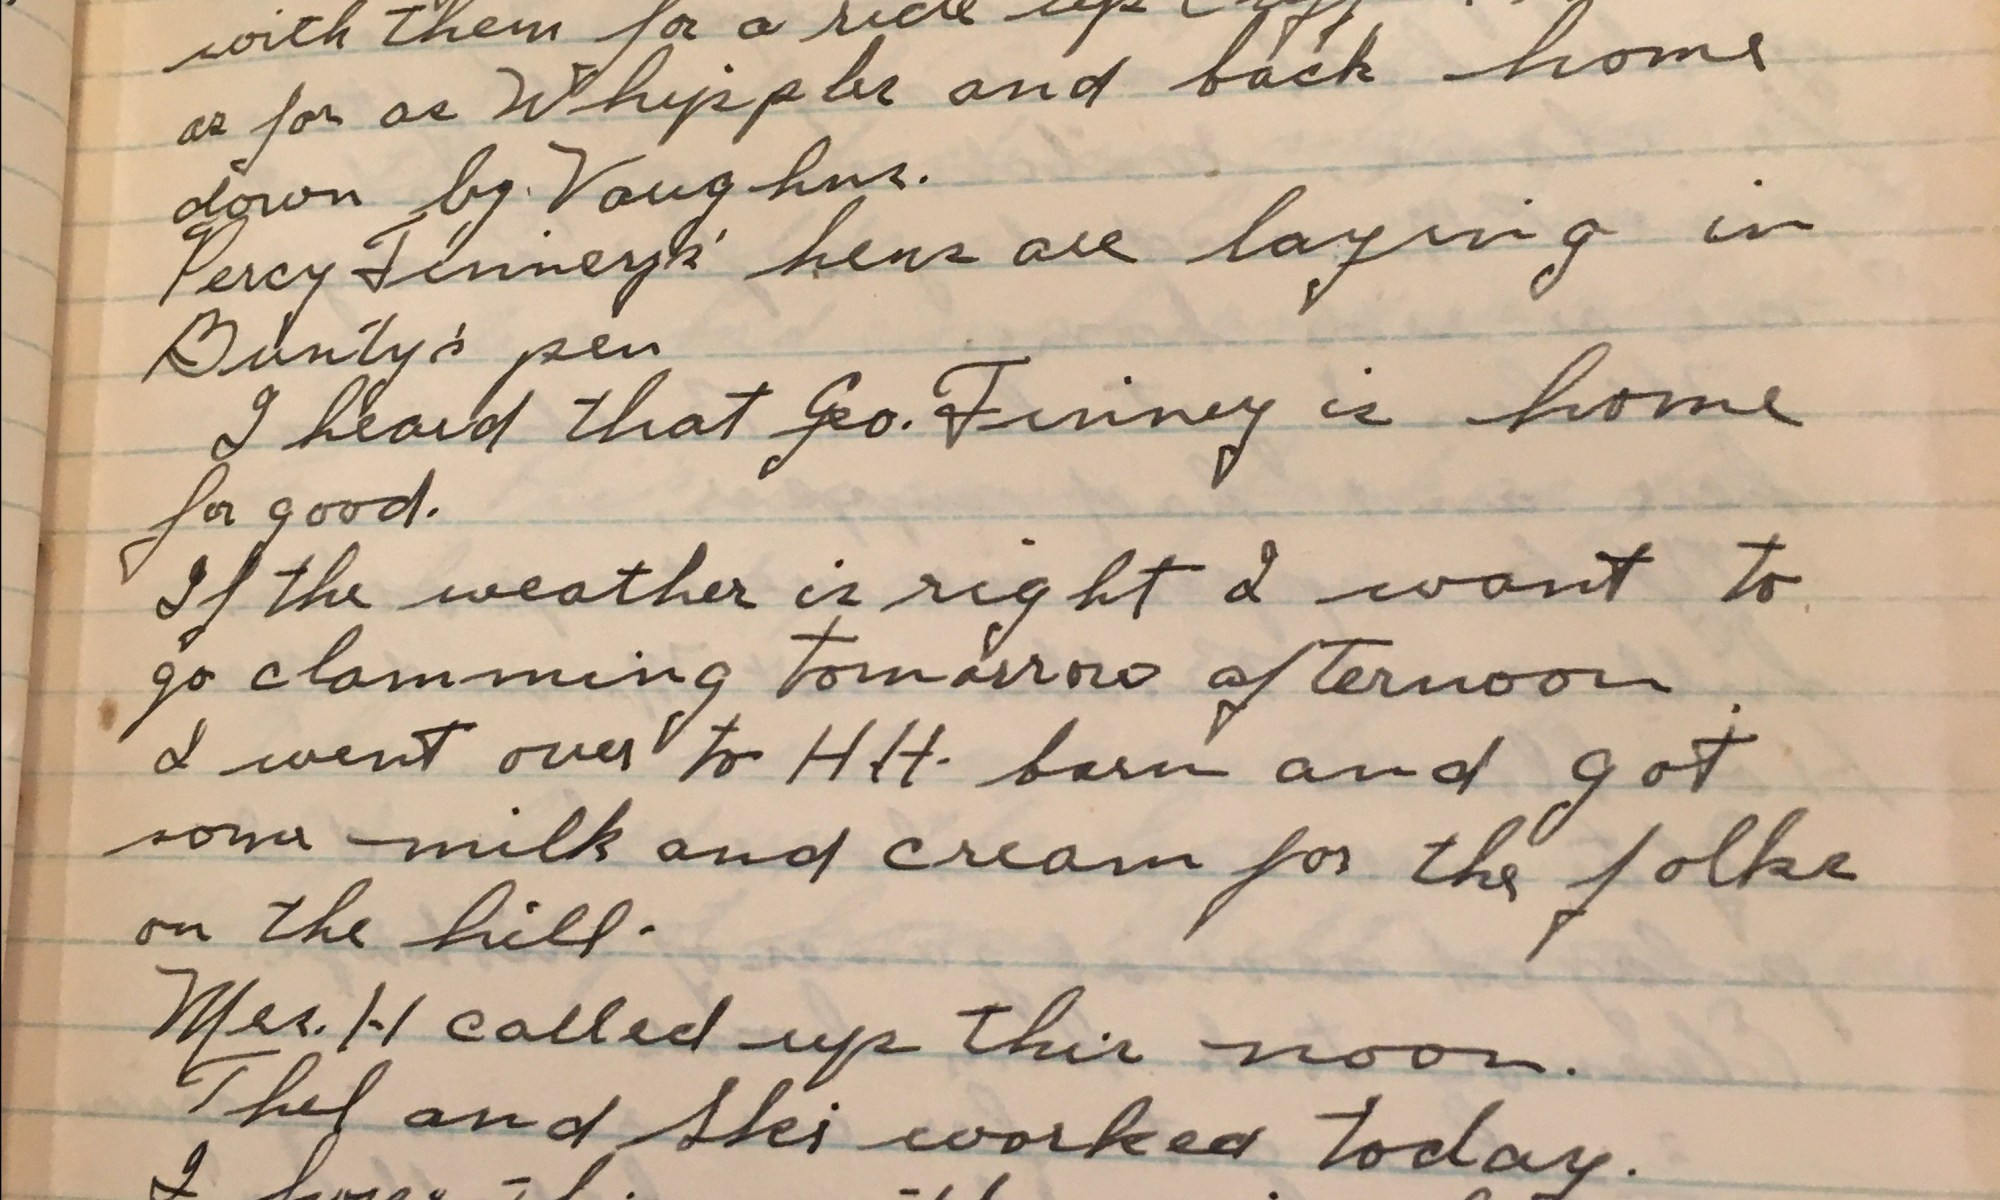 with them for a ride up
as far as Whipples and back home
down by Vaughns.
Percy Finney's hens are laying in
Bunty's pen
I heard that Geo. Finney is home
for good.
If the weather is right I want to
go clamming tomorrow afternoon
I went over to H H. barn and got
some milk and cream for the folks
on the hill.
Mrs. H called up this noon.
Thel and Ski worked today.
I